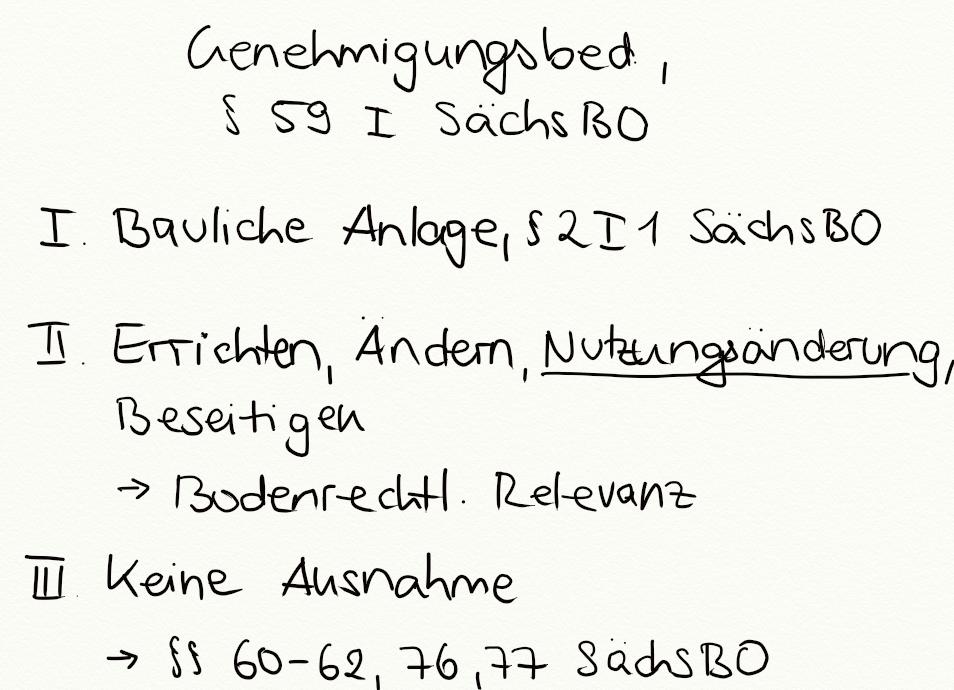 Genehmigungsbed,
§ 59 I SächsBO
I. Bauliche Anlage, § 2 I 1 SächsBO
II. Errichten, Ändern, Nutzungsänderung,
Beseitigen
→ Bodenrechtl. Relevanz
III. Keine Ausnahme
→ §§ 60-62, 76, 77 SächsBO